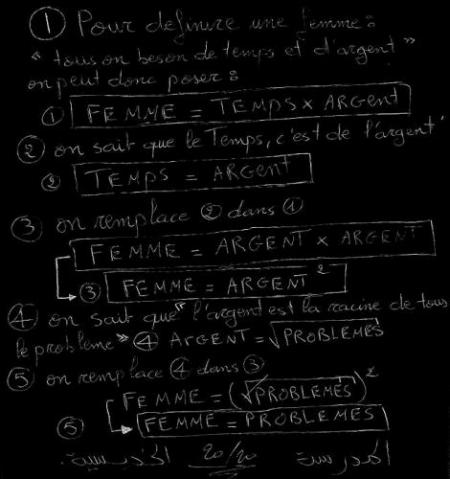 ① Pour definire une femme :
" tous on beson de temps et d'argent "
on peut donc poser :
① FEMME = TEMPS x ARGent
② on sait que le Temps, c'est de l'argent
② TEMPS = ARGent
③ on remplace ② dans ①
FEMME = ARGENT x ARGENT
③ FEMME = ARGENT²
④ on sait que " l'argent est la racine de tous
le probleme " ④ ARGENT = √PROBLEMES
⑤ on remplace ④ dans ③
FEMME = (√PROBLEMES)²
⑤ FEMME = PROBLEMES
20/20